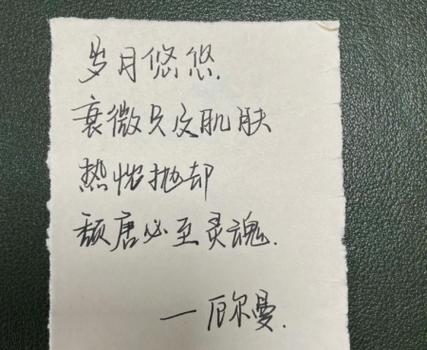 岁月悠悠.
衰微只及肌肤
热忱抛却
颓唐必至灵魂.
—厄尔曼.